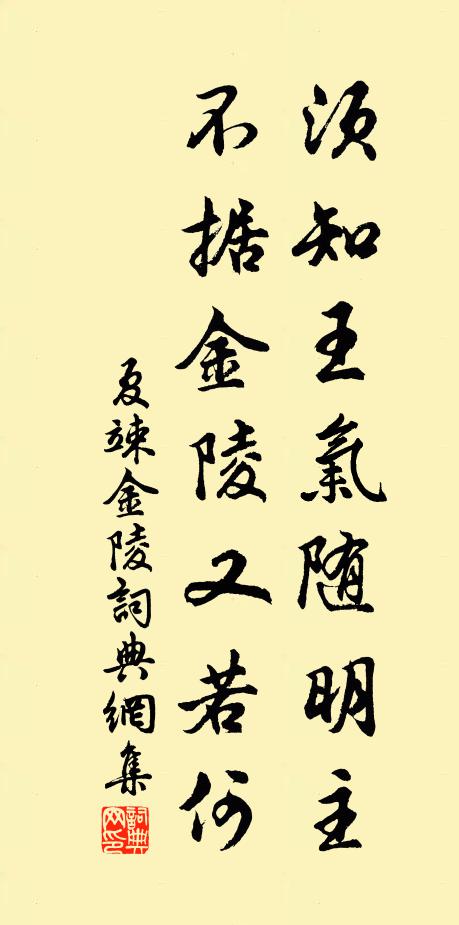 须知王氣随明主
不据金陵又若何
夏竦金陵詞典網集
詞典網印